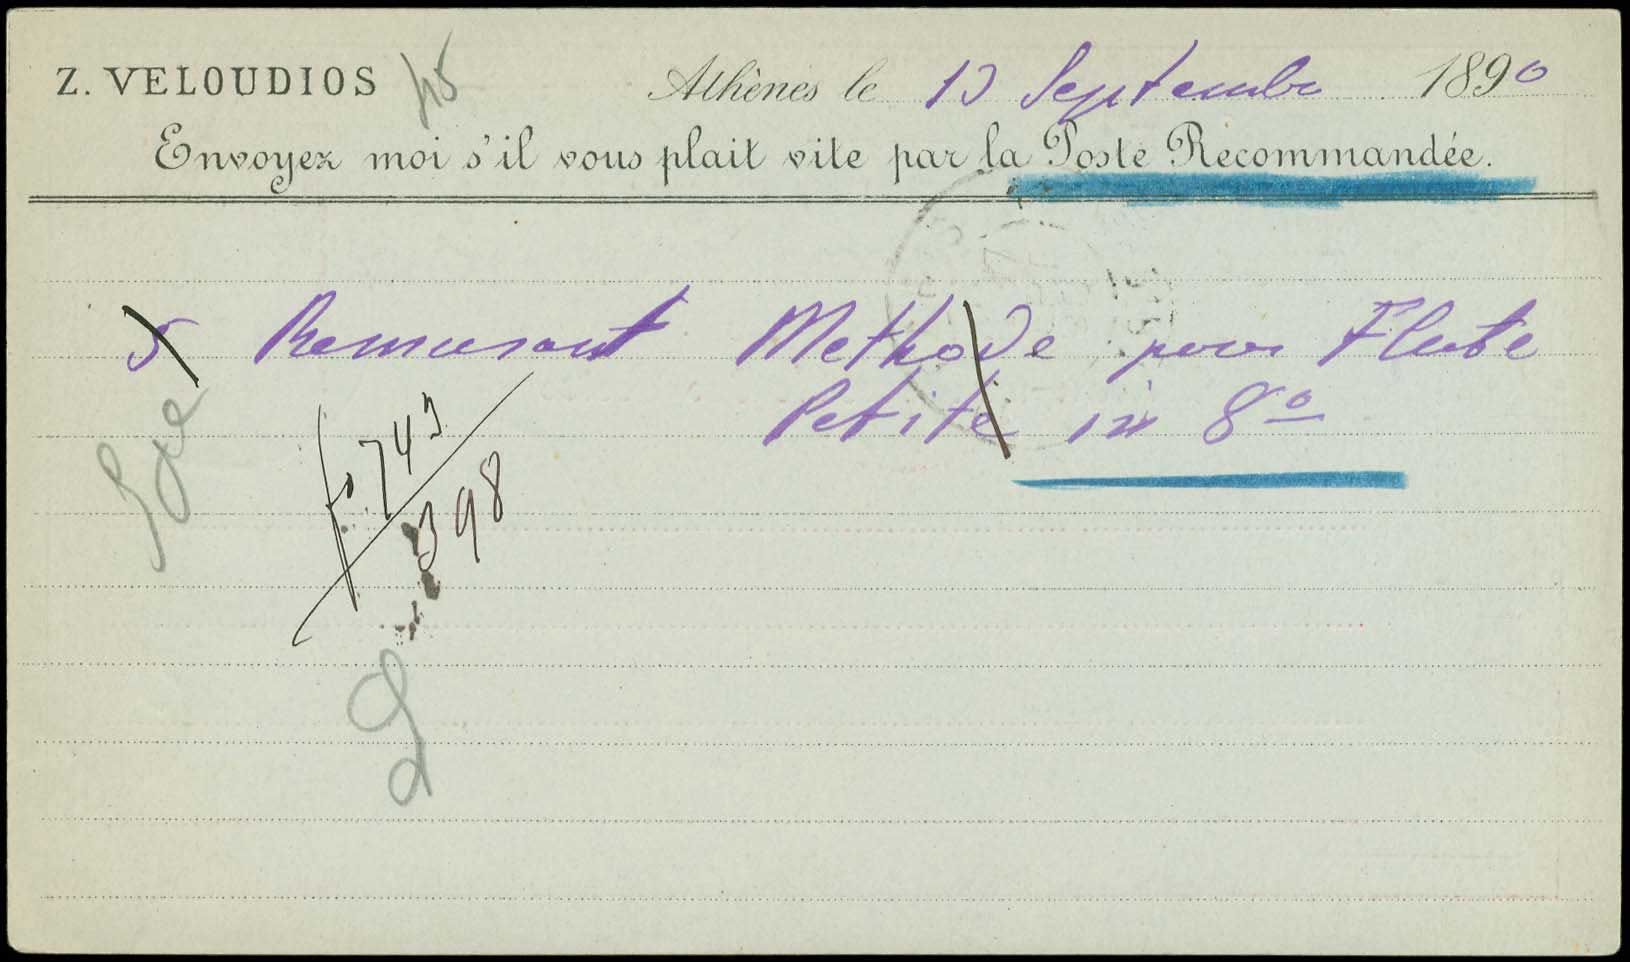 Z. VELOUDIOS 45 Athènes le 13 Septembre 1890
Envoyez moi s'il vous plait vite par la Poste Recommandée.
5 Remusat Methode pour Flute
Petite in 8º
fo 743
398